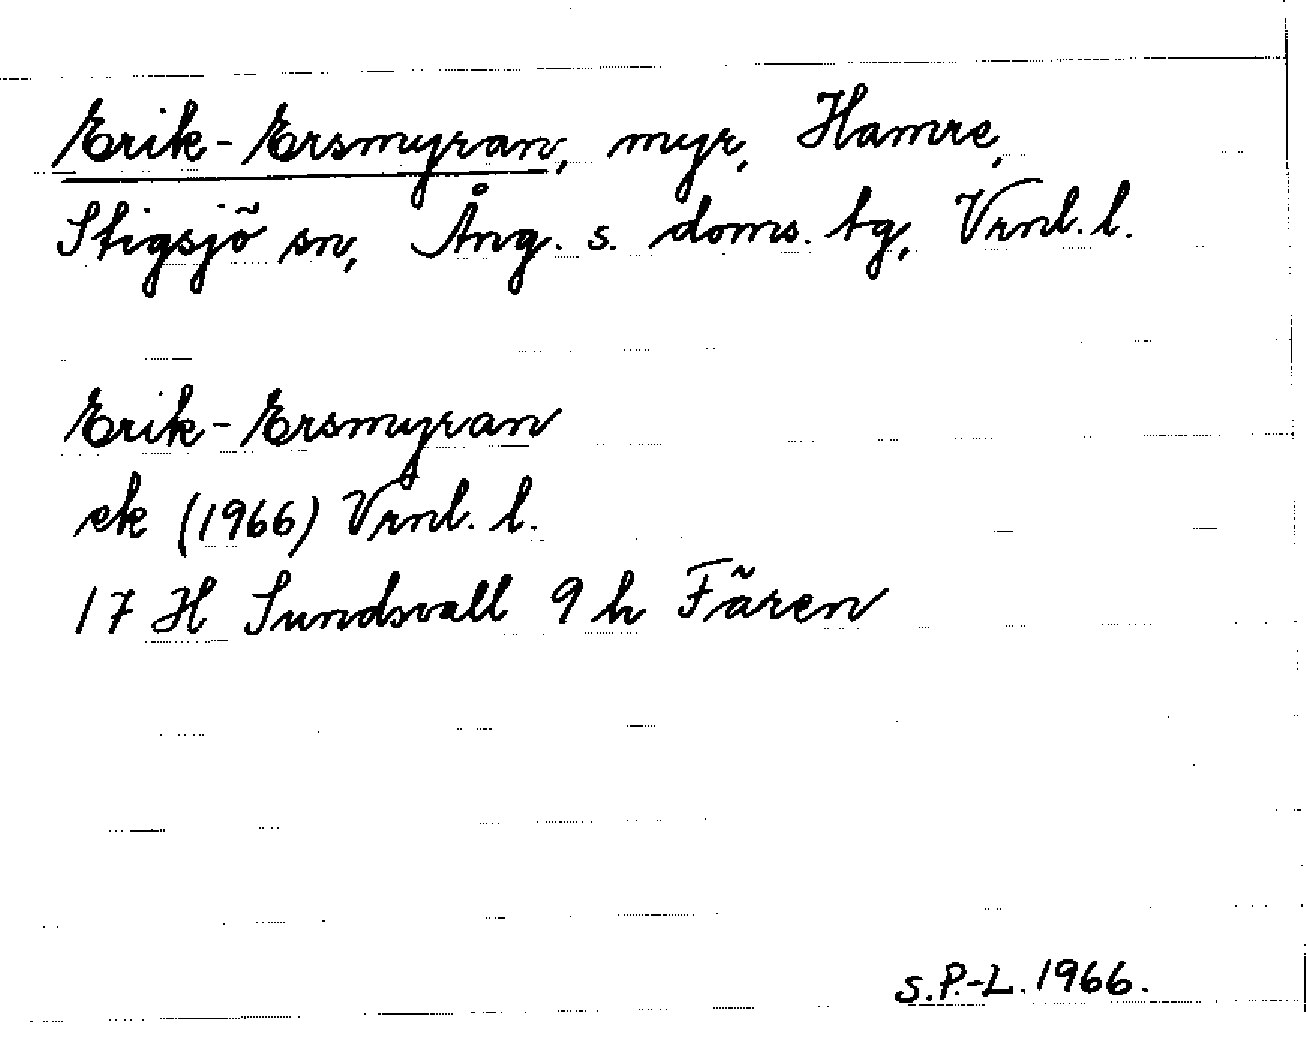 Erik-Ersmyran, myr, Hamre,
Stigsjö sn, Ång. s. doms. tg, Vrnl. l.
Erik-Ersmyran
ek (1966) Vrnl. l.
17 H Sundsvall 9 h Fären
S.P.-L. 1966.